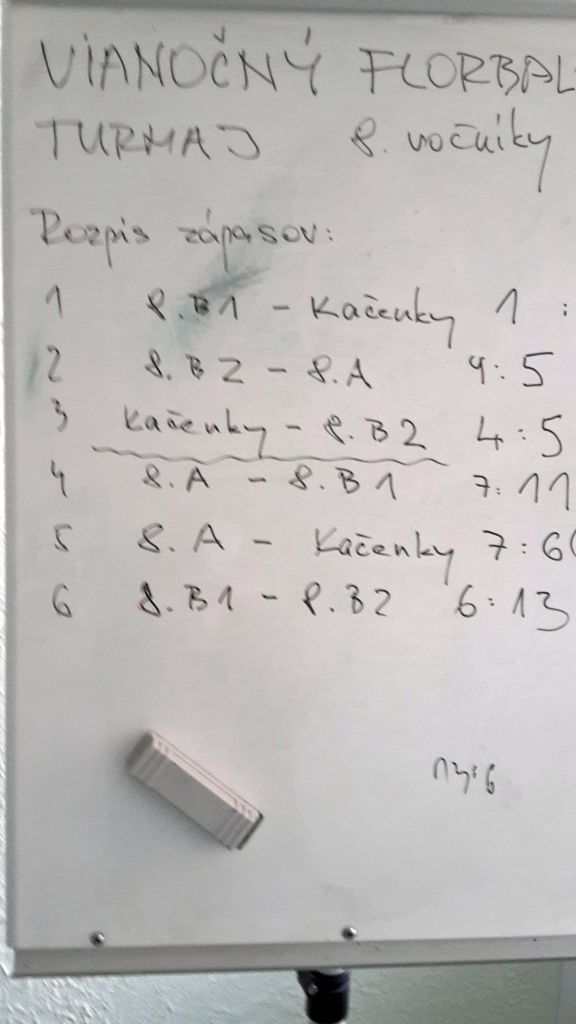 VIANOČNÝ FLORBAL
TURNAJ 8. ročníky
Rozpis zápasov:
1 8.B1 - Kačenky 1 :
2 8.B2 - 8.A 9:5
3 Kačenky - 8.B2 4:5
4 8.A - 8.B1 7:11
5 8.A - Kačenky 7:6(
6 8.B1 - 8.B2 6:13
13:6